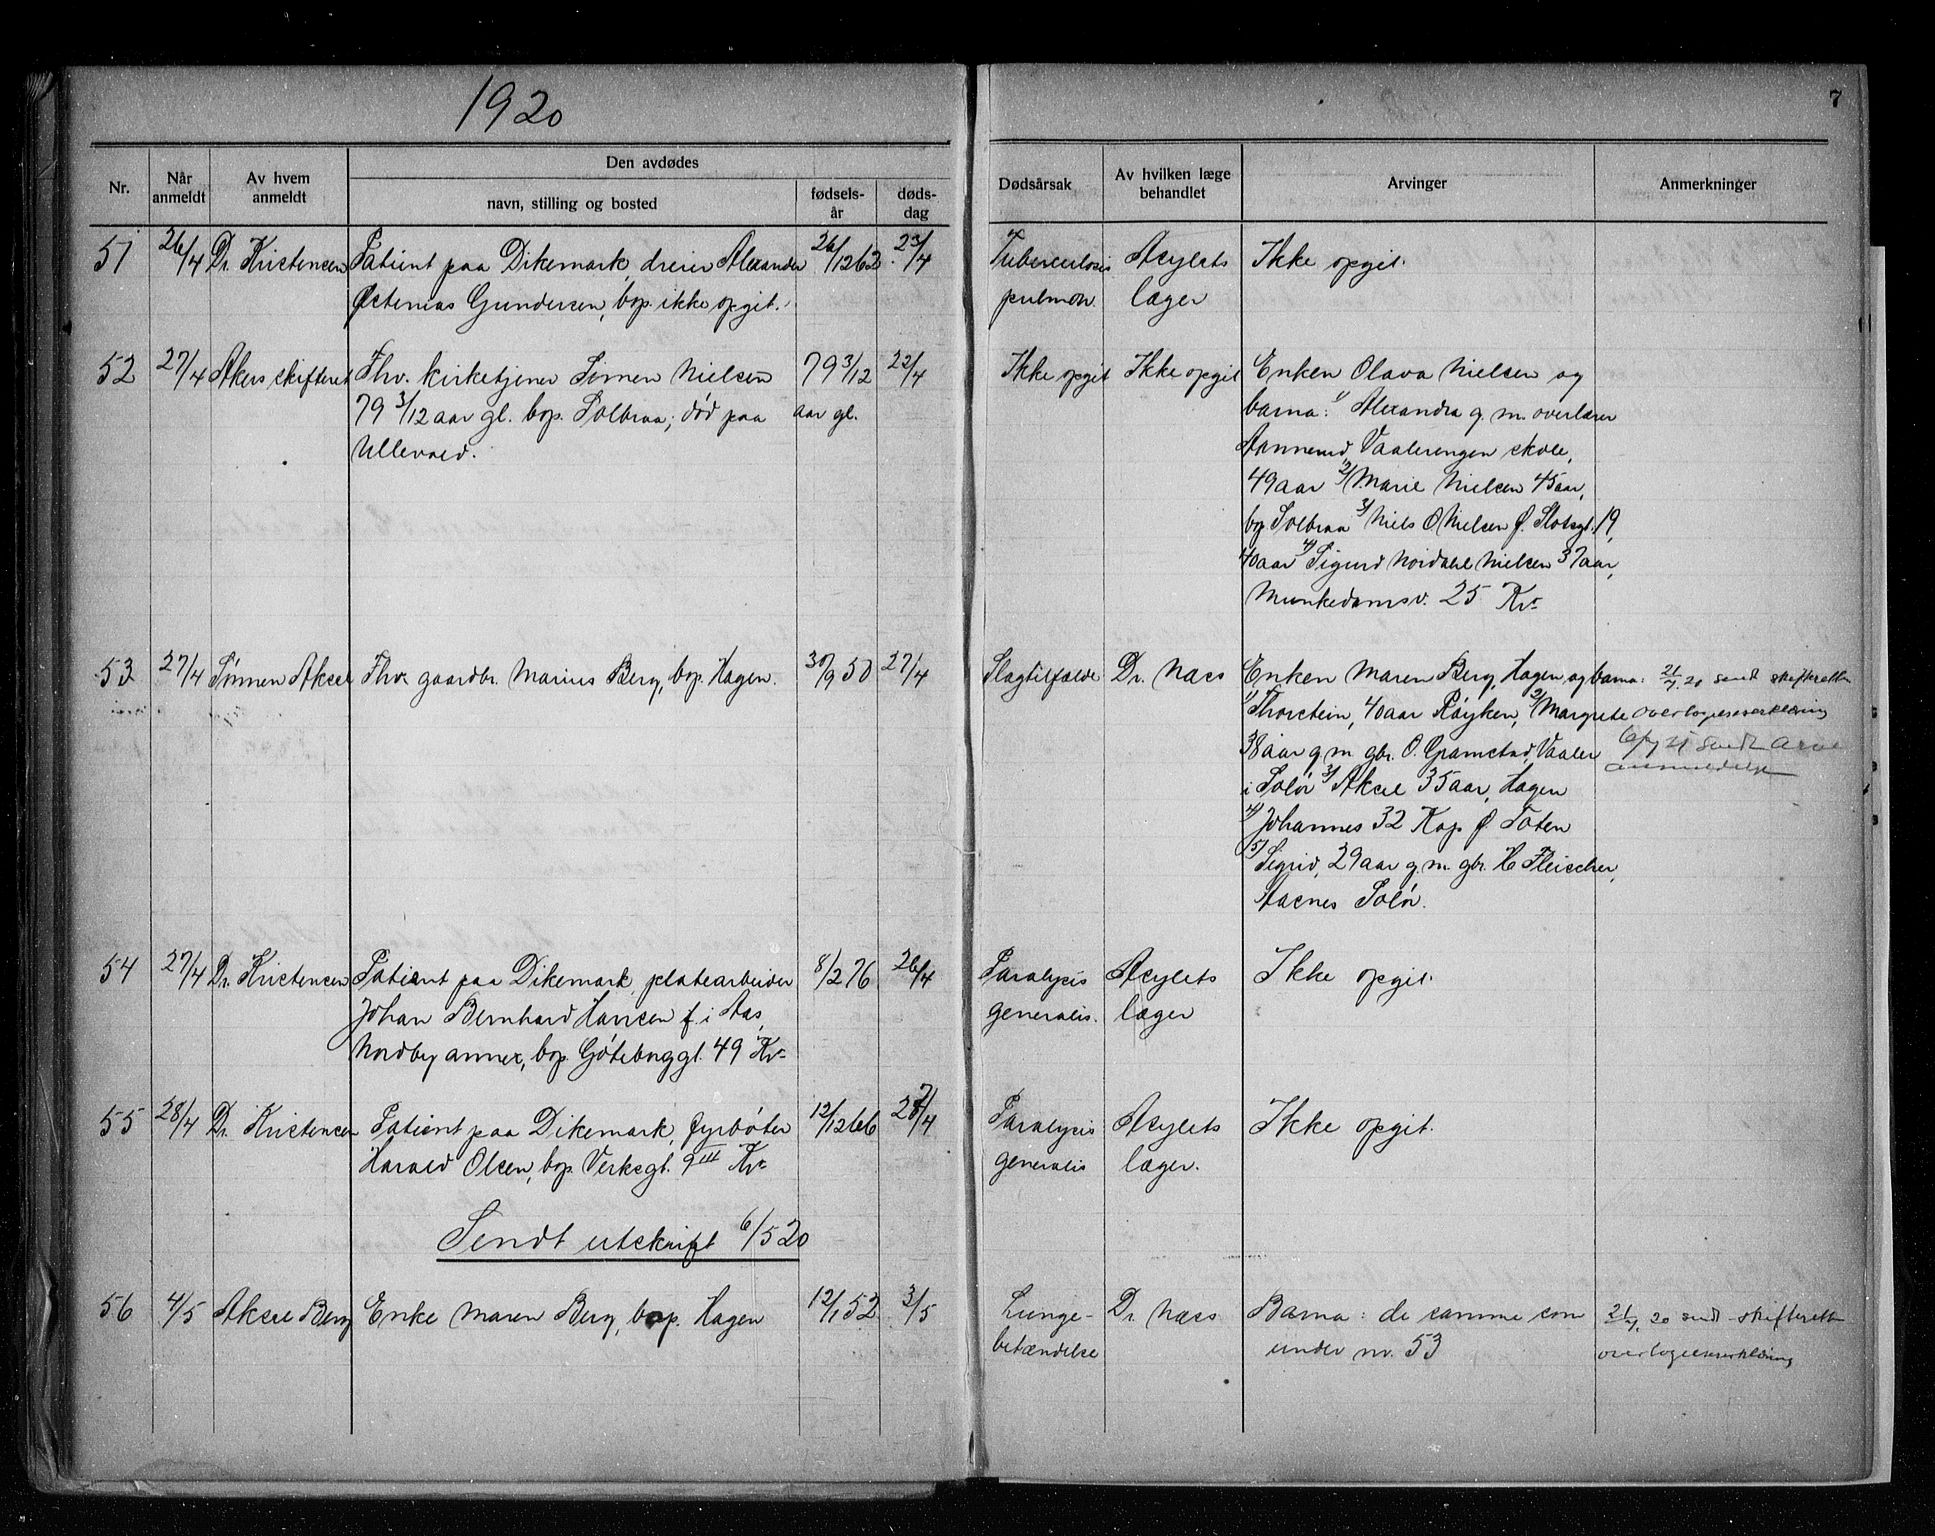 1920
7
Nr.
Når anmeldt
Av hvem anmeldt
Den avdødes
navn, stilling og bosted
fødsels-år
døds-dag
Dødsårsak
Av hvilken læge behandlet
Arvinger
Anmerkninger
51 26/4 Dr. Kristensen Patient paa Dikemark, dreier Alexander 26/12 62 23/4 Tuberculosis Asylets Ikke opgit.
Østenias Gundersen, bop. ikke opgit. pulmon. læger
52 27/4 Akers skifteret Fhv. kirketjener Simen Nielsen 79 3/12 22/4 Ikke opgit Ikke opgit Enken Olava Nielsen og
79 3/12 aar gl. bop. Solbraa, død paa aar gl. barna: 1/ Alexandra g. m. overlærer
Ullevold. Aannerud, Vaalerengen skole,
49 aar 2/ Marie Nielsen 45 aar,
bop. Solbraa 3/ Niels O Nielsen Ø. Slotsgt. 19,
40 aar 4/ Sigurd Nordahl Nielsen 37 aar,
Munkedamsv. 25 Kr.
53 27/4 Sønnen Aksel Fhv. gaardbr. Marius Berg, bop. Hagen. 30/9 50 27/4 Slagtilfælde Dr. Næss Enken Maren Berg, Hagen og barna: 21/7. 20 sendt skifteretten
1/ Thorstein, 40 aar Røyken, 2/ Margrete overtagelseserklæring
38 aar g. m. gbr. O. Gramstad, Vaaler 6/7 21 sendt Arve
i Solør 3/ Aksel 35 aar, Hagen anmeldelse
4/ Johannes 32 Kap Ø. Toten
5/ Sigrid, 29 aar g. m. gbr. H Fleischer,
Aasnes Solør.
54 27/4 Dr. Kristensen Patient paa Dikemark, platearbeider 8/2 76 26/4 Paralysis Asylets Ikke opgit.
Johan Bernhard Hansen f. i Aas, generalis. læger
Nordby annex, bop. Göteborggt. 49 Kr.
55 28/4 Dr. Kristensen Patient paa Dikemark, fyrbøter 12/12 66 27/4 Paralysis Asylets Ikke opgit.
Harald Olsen, bop. Verksgt. 9 III Kr. generalis læger.
Sendt utskrift 6/5 20
56 4/5 Aksel Berg Enke Maren Berg, bop. Hagen 12/1 52 3/5 Lunge- Dr. Næss Barna: de samme som 21/7. 20 sendt skifteretten
betændelse under nr. 53 overtagelseserklæring